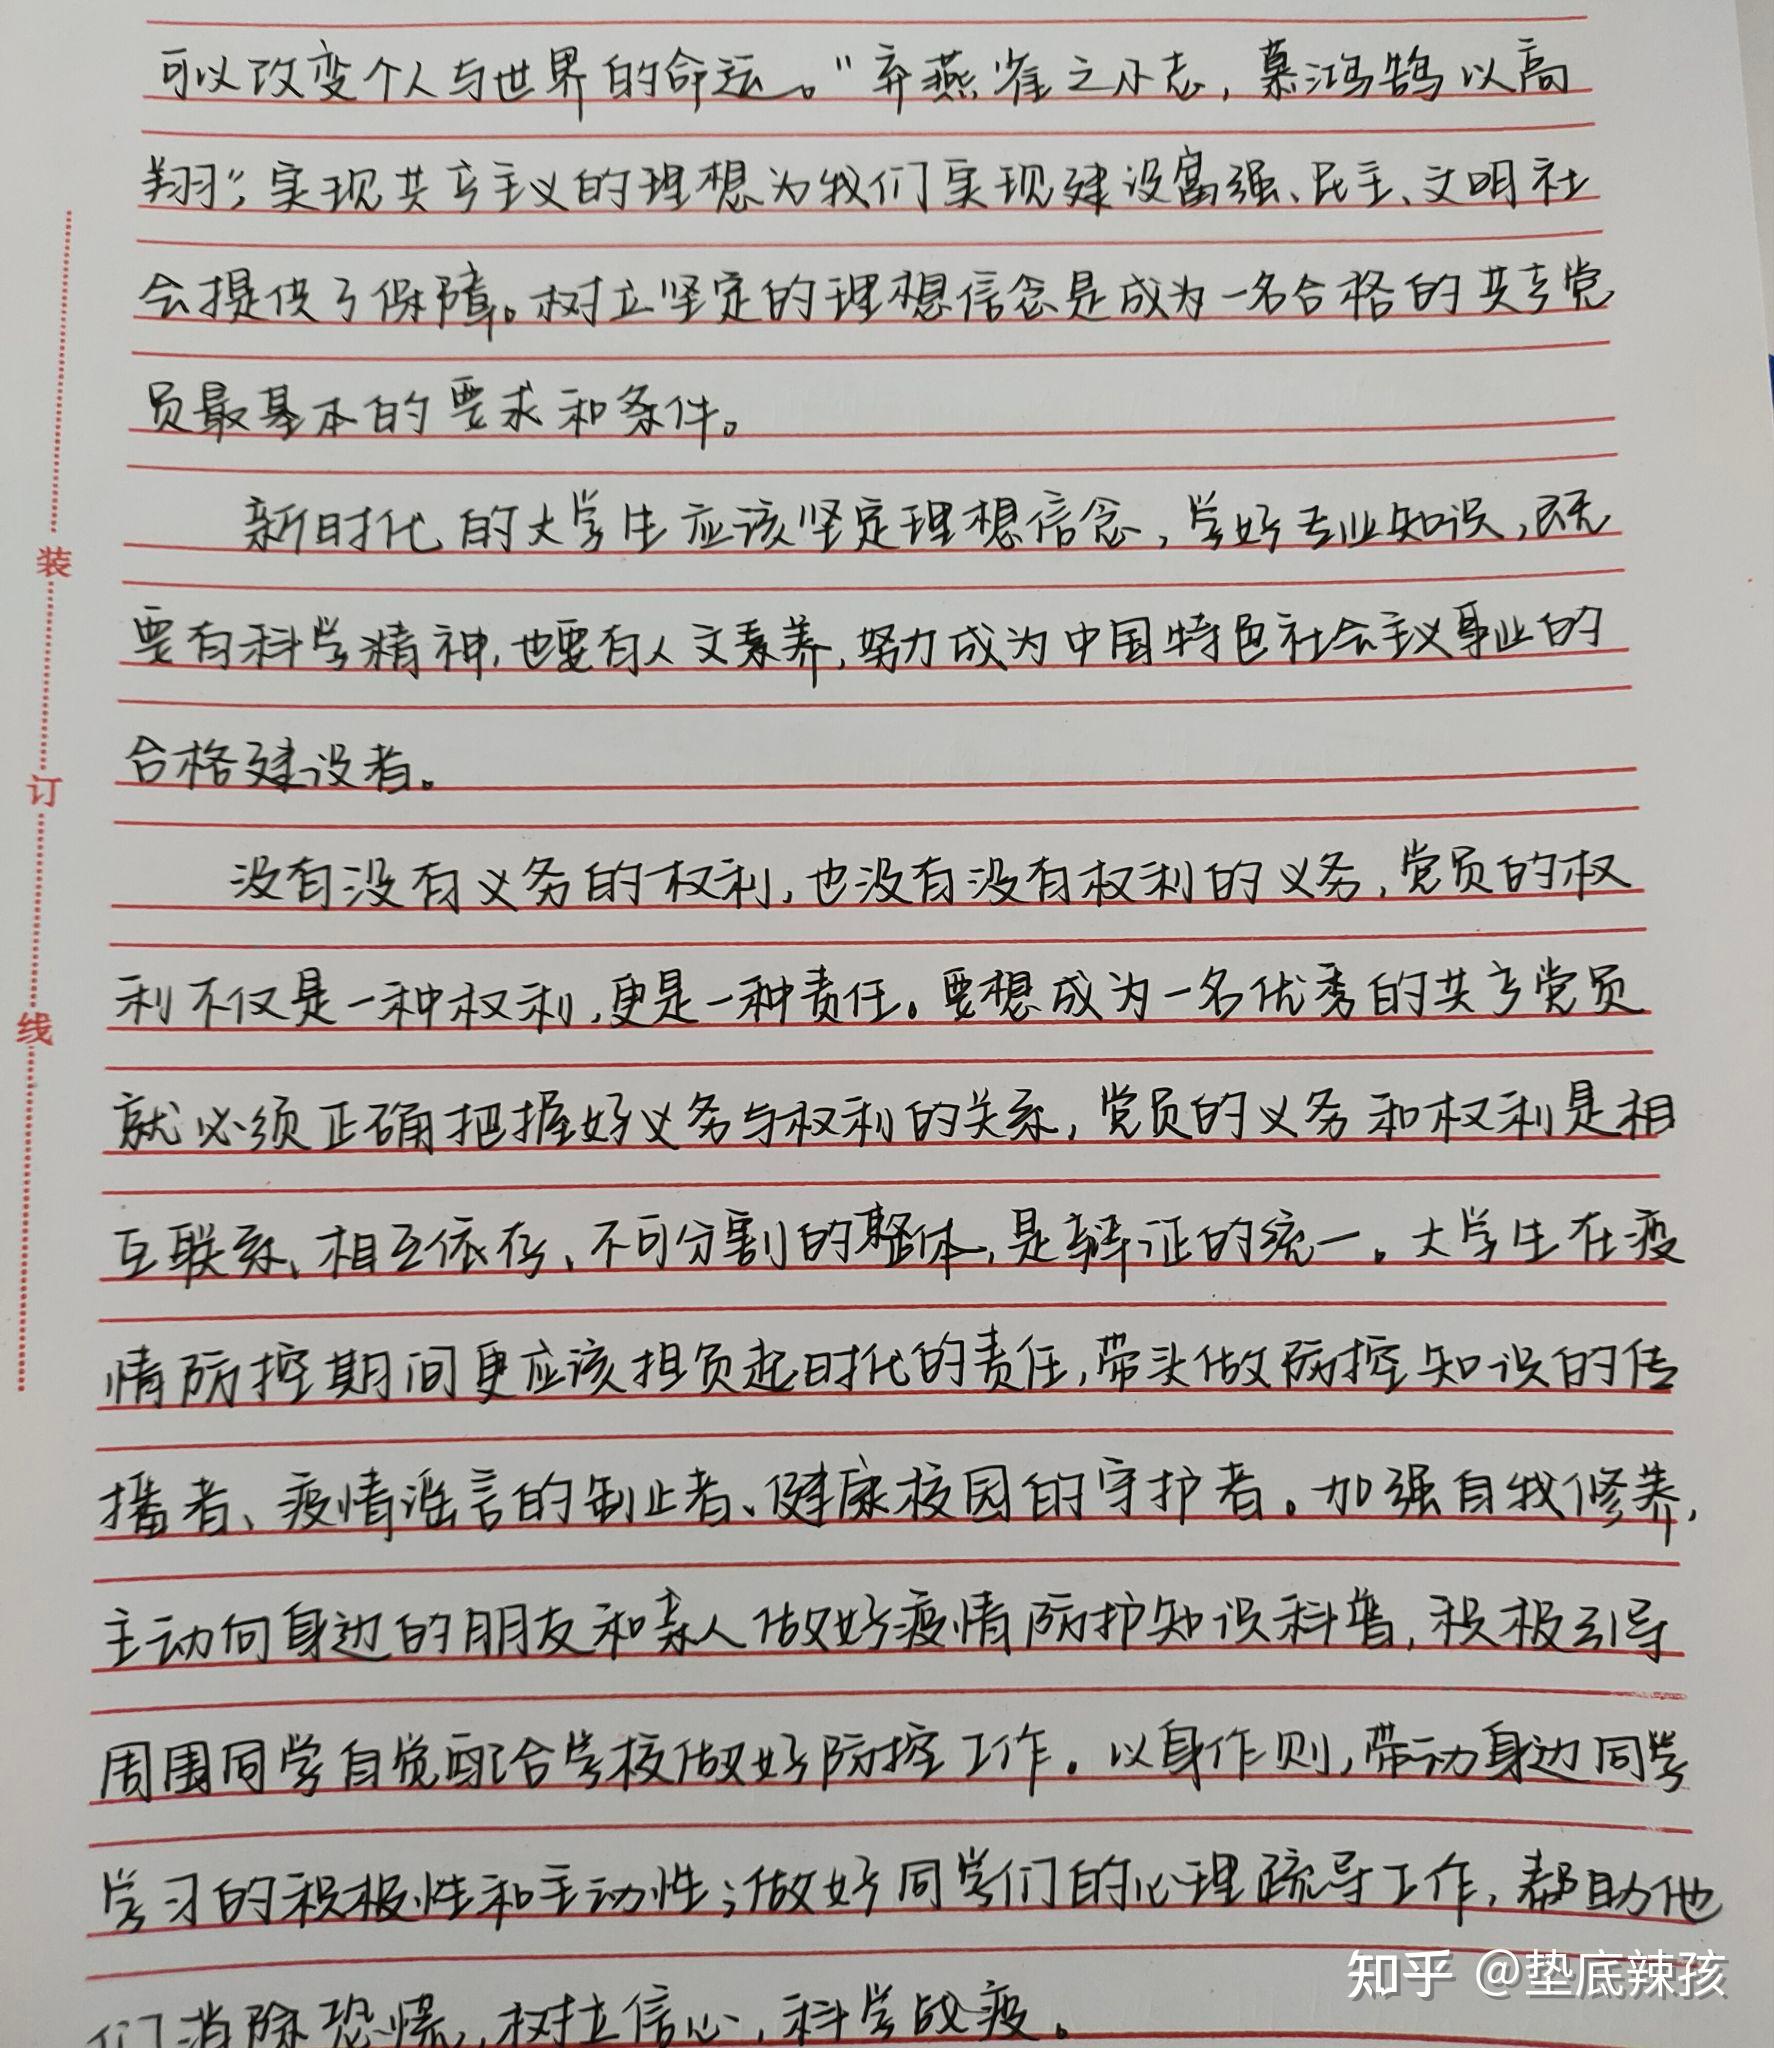 可以改变个人与世界的命运。"弃燕雀之小志，慕鸿鹄以高
翔"，实现共产主义的理想为我们实现建设富强、民主、文明社
会提供了保障。树立坚定的理想信念是成为一名合格的共产党
员最基本的要求和条件。
新时代的大学生应该坚定理想信念，学好专业知识，既
要有科学精神，也要有人文素养，努力成为中国特色社会主义事业的
合格建设者。
没有没有义务的权利，也没有没有权利的义务，党员的权
利不仅是一种权利，更是一种责任。要想成为一名优秀的共产党员
就必须正确把握好义务与权利的关系，党员的义务和权利是相
互联系、相互依存、不可分割的整体，是辩证的统一。大学生在疫
情防控期间更应该担负起时代的责任，带头做防控知识的传
播者、疫情谣言的制止者、健康校园的守护者。加强自我修养，
主动向身边的朋友和亲人做好疫情防护知识科普，积极引导
周围同学自觉配合学校做好防控工作。以身作则，带动身边同学
学习的积极性和主动性；做好同学们的心理疏导工作，帮助他
们消除恐慌，树立信心，科学战疫。
装
订
线
知乎 @垫底辣孩